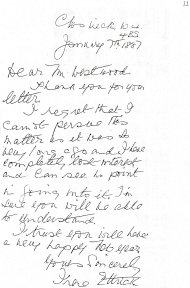 11
January 7th 1987
Dear Mr. Westwood
Thank you for your
letter.
I regret that I
cannot persue this
matter as it was so
very long ago and I have
completely lost interest
and can see no point
in going into it. I'm
sure you will be able
to understand.
I trust you will have
a very happy New Year
Yours Sincerely
Irene